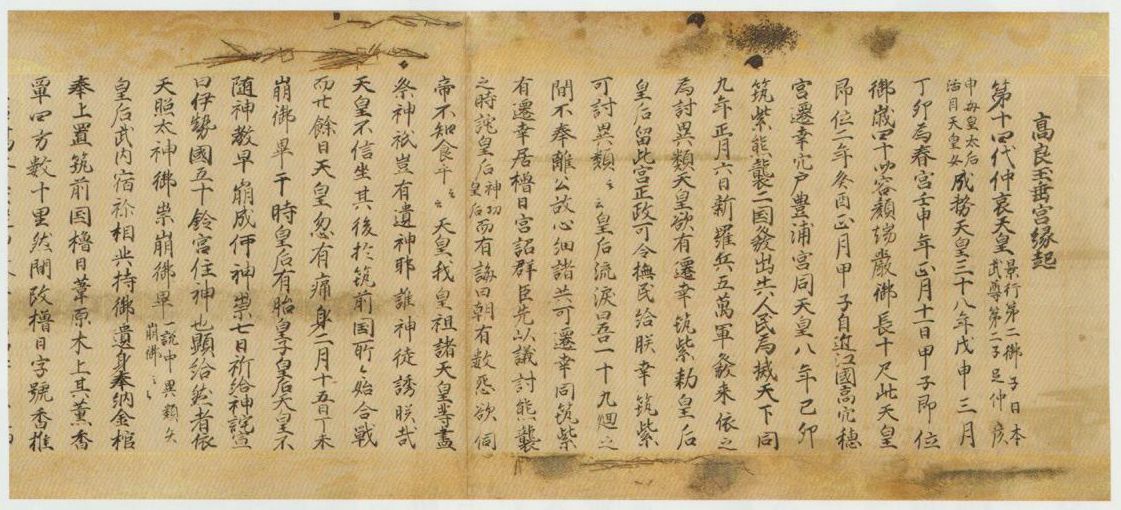 高良玉垂宮縁起
第十四代仲哀天皇 景行第二御子日本武尊第二子足仲彦
申毎皇太后活目天皇女 成務天皇三十八年戊申三月
丁卯為春宮壬申年正月十一日甲子即位
御歳四十四容顔端厳御長十尺此天皇
即位二年癸酉正月甲子自近江國高穴穂
宮遷幸穴戸豊浦宮同天皇八年己卯
筑紫熊襲二国發出共人民為撼天下同
九年正月六日新羅兵五萬軍發来依之
為討異類天皇欲有遷幸筑紫勅皇后
皇后留此宮正政可令撫民給朕幸筑紫
可討異類〻云皇后流涙曰吾一十九廻之
間不奉離公故心細諸共可遷幸同筑紫
有遷幸居橿日宮詔群臣先以議討熊襲
之時詫皇后 神功皇后 而有誨曰朝有数悉欲伺
帝不知食乎〻云天皇我皇祖諸天皇等盡
祭神祇豈有遺神耶誰神徒誘朕哉
天皇不信坐其後於筑前国所〻始合戦
而廿餘日天皇忽有痛身二月十五日丁未
崩御畢于時皇后有胎皇子皇后天皇不
随神教早崩成何神祟七日祈給神詫宣
曰伊勢國五十鈴宮住神也顕給然者依
天照太神御祟崩御畢 一説中異類矢崩御〻
皇后武内宿祢相共持御遺身奉納金棺
奉上置筑前国橿日葦原木上其薫香
覃四方数十里然間改橿日字號香推